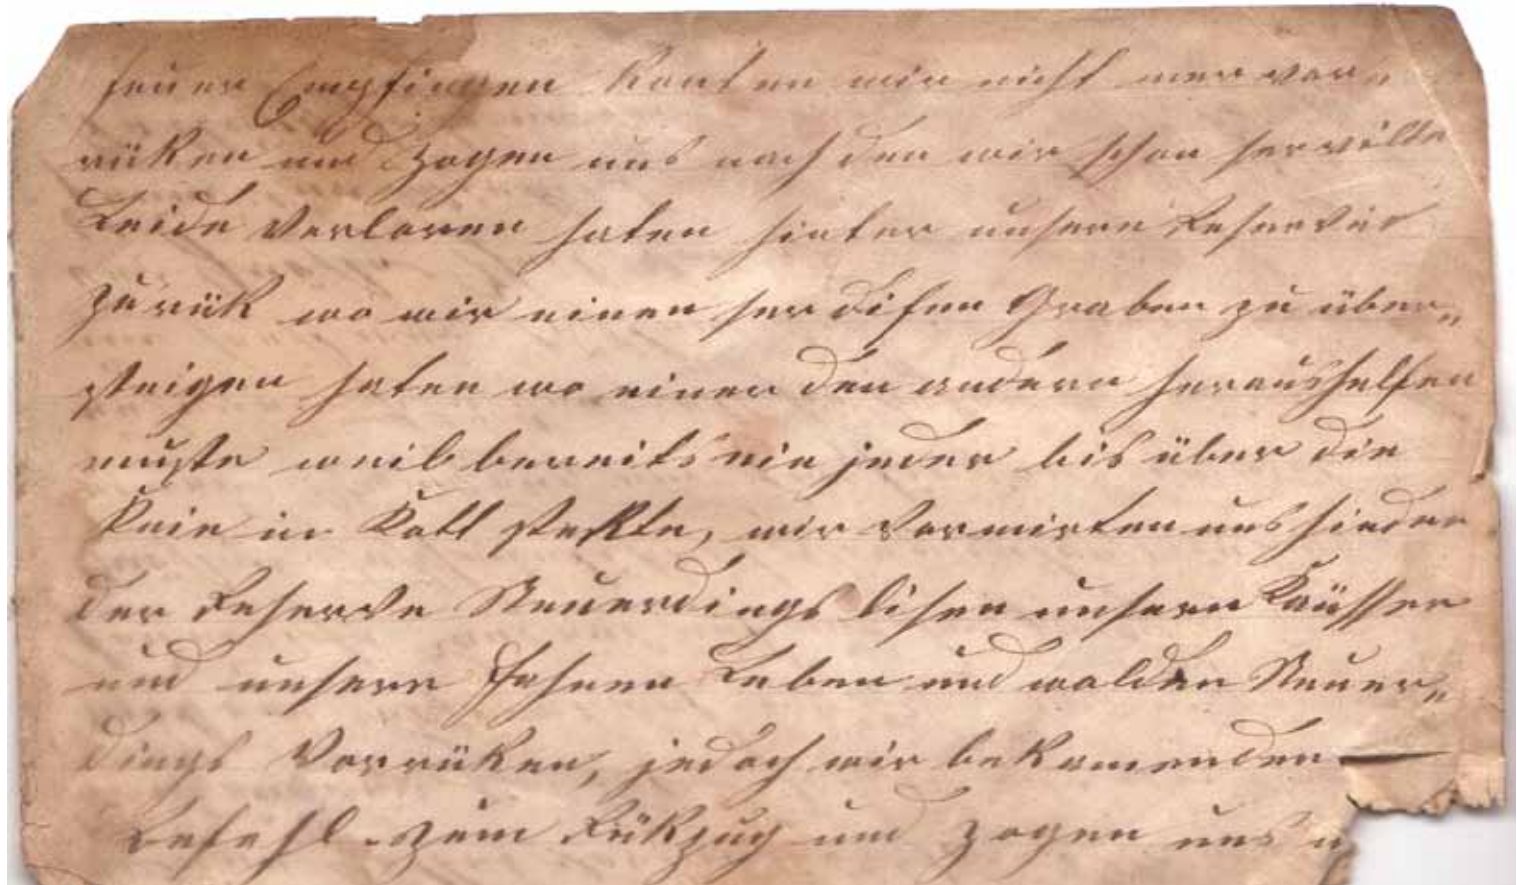 feuer Empfingen konten wir nicht mer vor„
rüken und zogen uns nach den wir schon ser ville
Leide Verloren haten hinter unsere Reserve
zurük wo wir einen ser difen Graben zu über„
steigen haten wo einer den andern heraushelfen
muste weil bereits ein jeder bis über die
Knie in Kott stekte, wir Formirten uns hinder
der Reserve Neuerdings lisen unsern Keüsser
und unsere Fahnen Leben und wolden Neuer„
dings Vorrüken, jedoch wir bekamen den
Befehl zum Rükzug und zogen uns